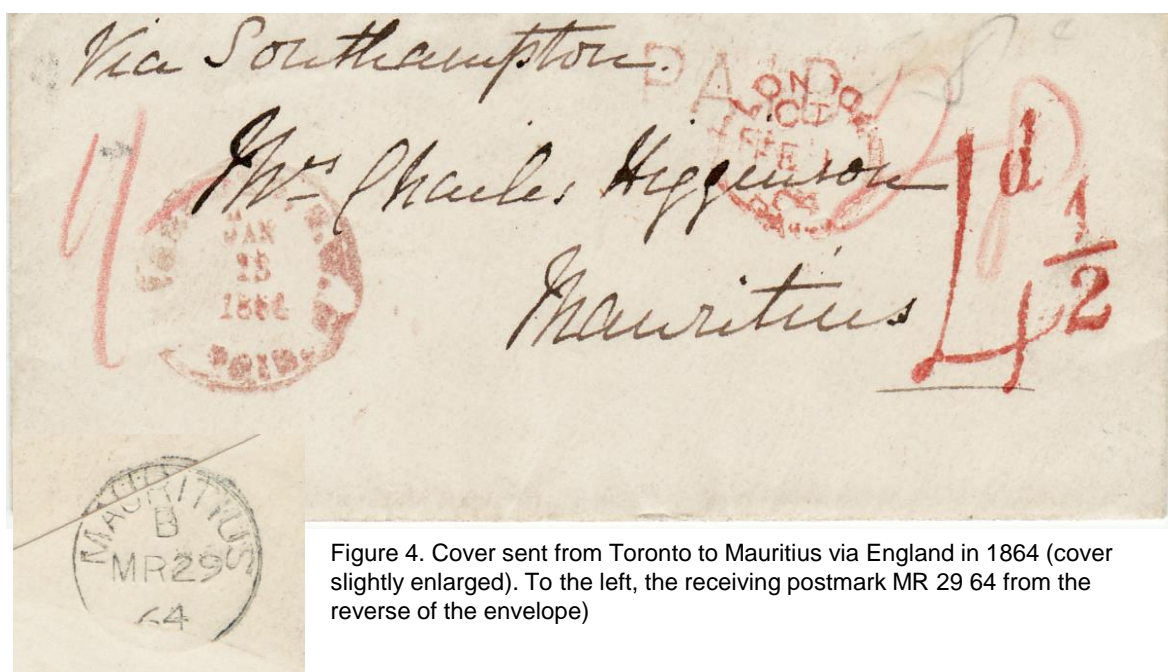 Via Southampton.
PAID
28
LONDON
Mrs Charles Higginson
JAN
25
1864
PAID
1d
4
1/2
Mauritius
MAURITIUS
B
MR 29
64
Figure 4. Cover sent from Toronto to Mauritius via England in 1864 (cover
slightly enlarged). To the left, the receiving postmark MR 29 64 from the
reverse of the envelope)